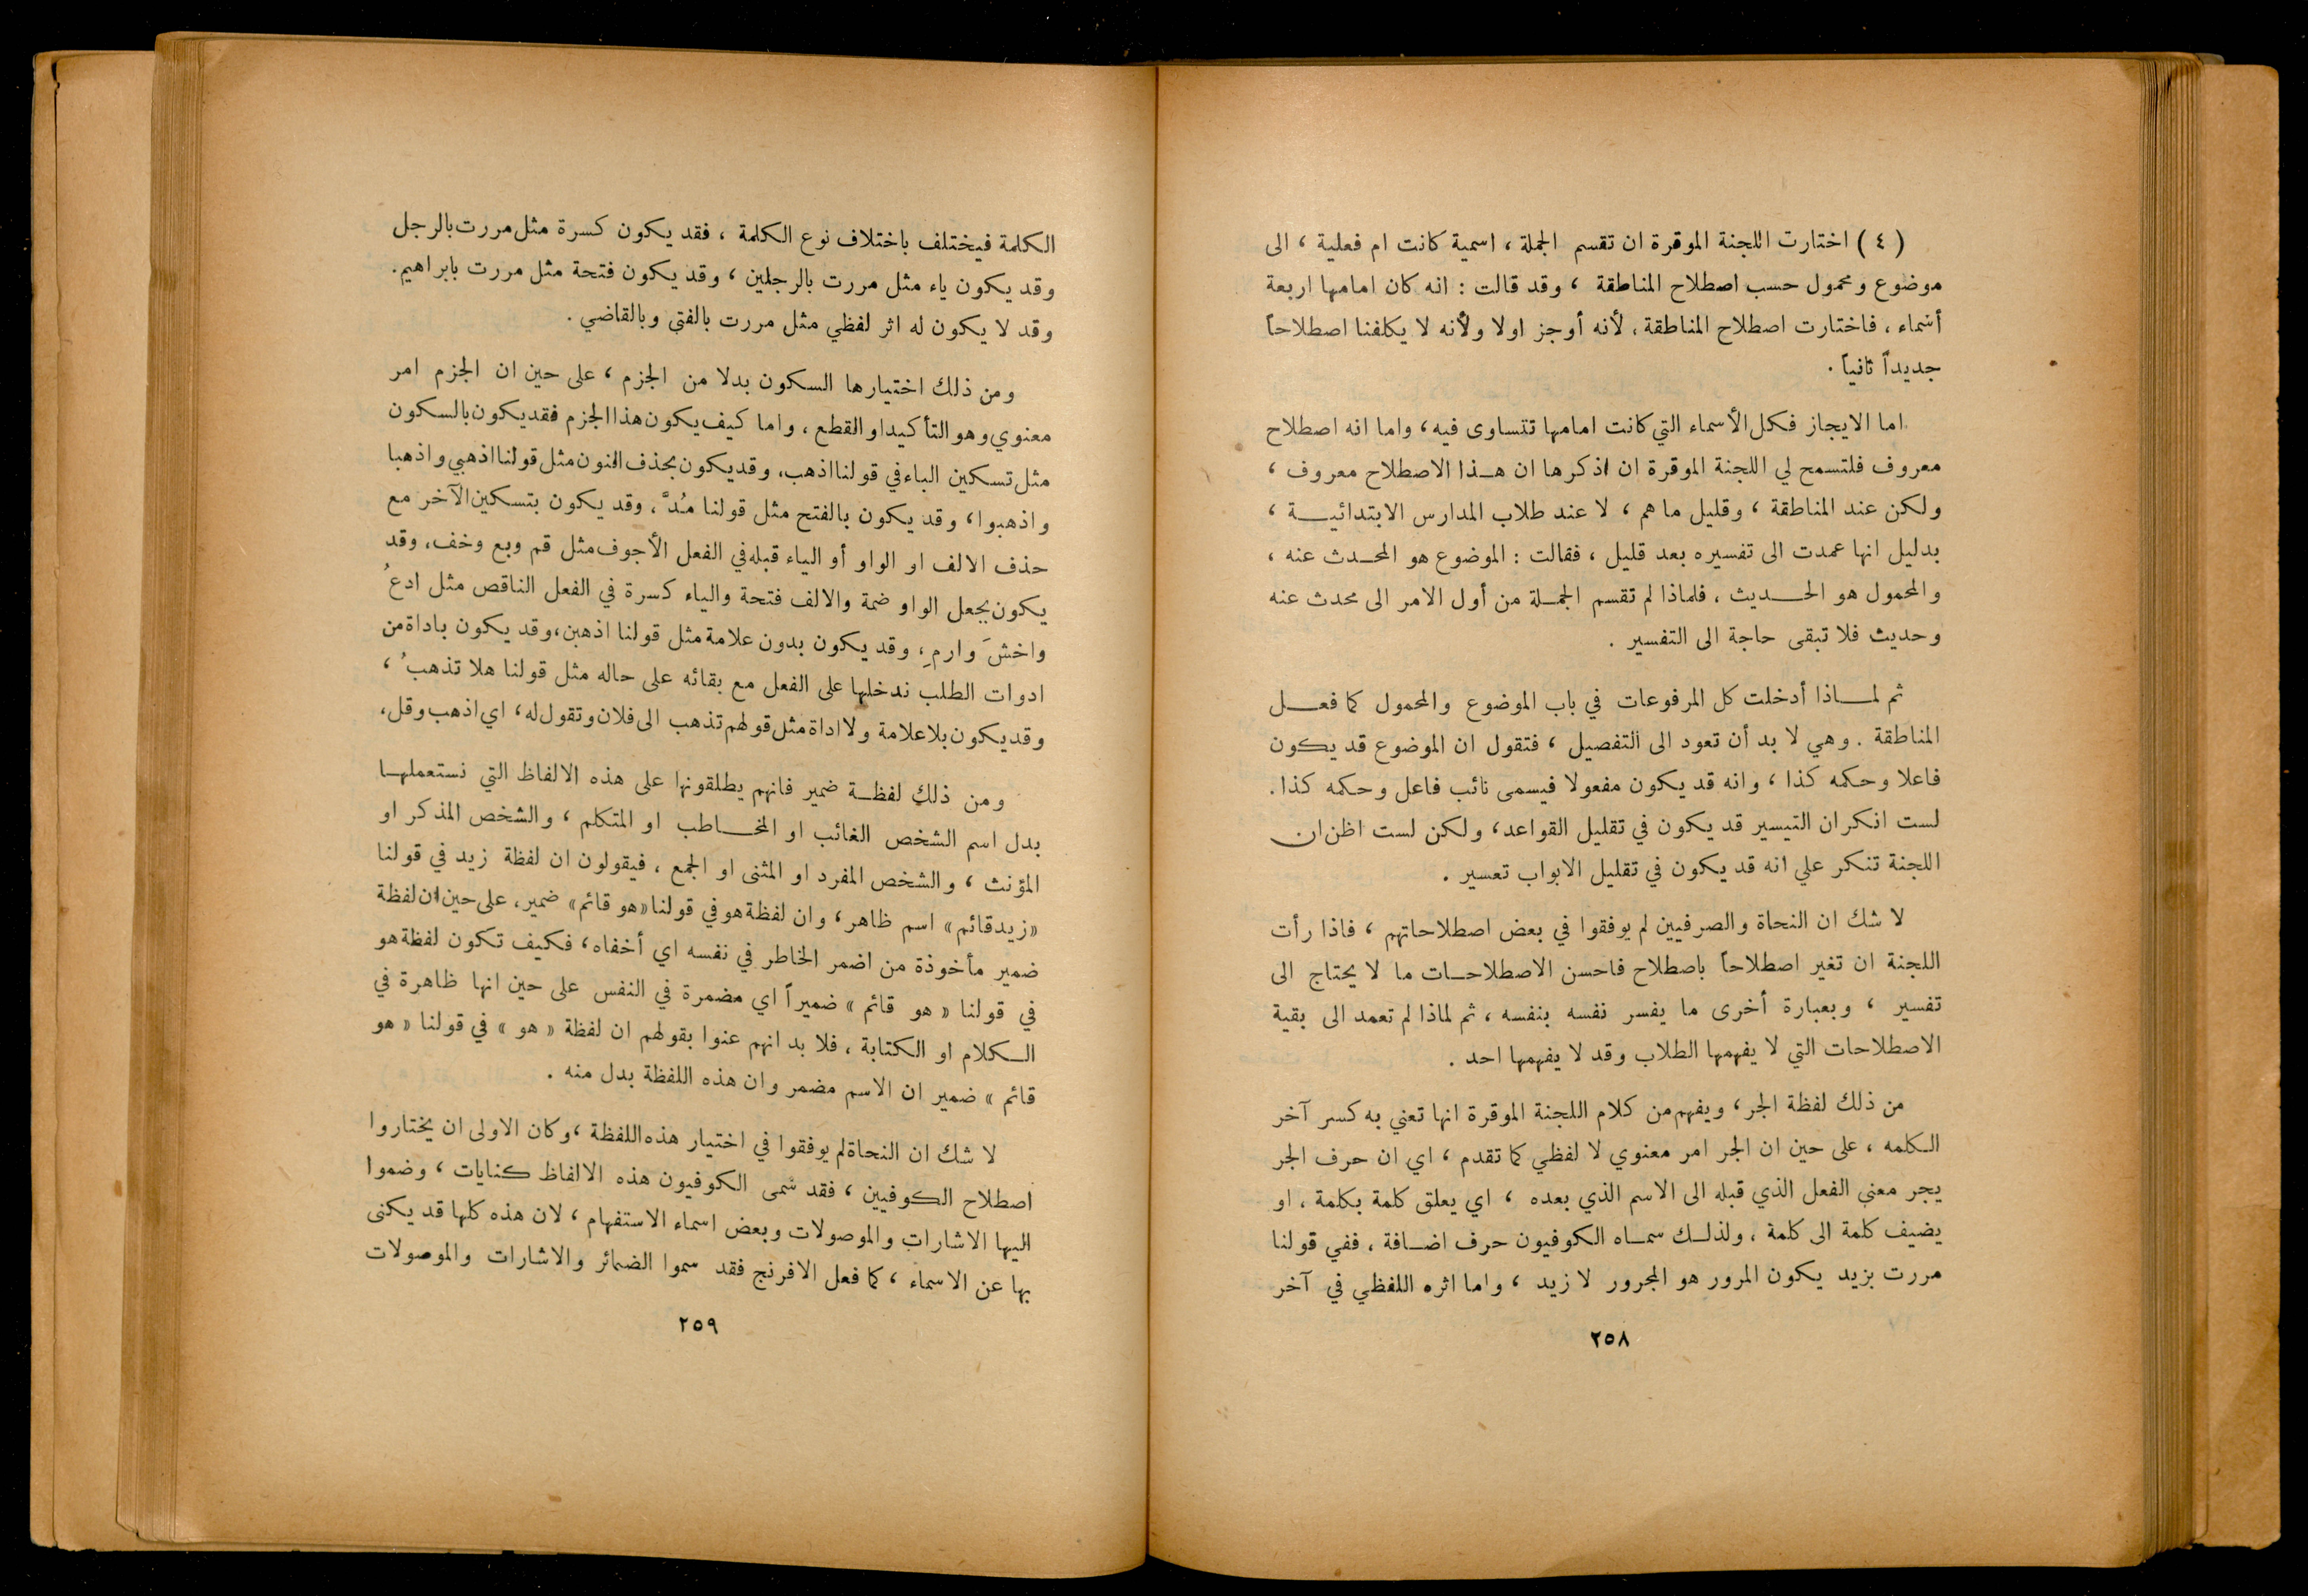 ( ٤ ) اختارت اللجنة الموقرة ان تقسم الجملة ، اسمية كانت ام فعلية ، الى
موضوع ومحمول حسب اصطلاح المناطقة ، وقد قالت : انه كان امامها اربعة
أسماء ، فاختارت اصطلاح المناطقة ، لأنه أوجز اولا ولأنه لا يكلفنا اصطلاحاً
جديداً ثانياً .
اما الايجاز فكل الأسماء التي كانت امامها تتساوى فيه ، واما انه اصطلاح
معروف فلتسمح لي اللجنة الموقرة ان اذكرها ان هـذا الاصطلاح معروف ،
ولكن عند المناطقة ، وقليل ما هم ، لا عند طلاب المدارس الابتدائيـة ،
بدليل انها عمدت الى تفسيره بعد قليل ، فقالت : الموضوع هو المحـدث عنه ،
والمحمول هو الحـديث ، فلماذا لم تقسم الجمـلة من أول الامر الى محدث عنه
وحديث فلا تبقى حاجة الى التفسير .
ثم لمـاذا أدخلت كل المرفوعات في باب الموضوع والمحمول كما فعـل
المناطقة . وهي لا بد أن تعود الى التفصيل ، فتقول ان الموضوع قد يكون
فاعلا وحكمه كذا ، وانه قد يكون مفعولا فيسمى نائب فاعل وحكمه كذا .
لست انكر ان التيسير قد يكون في تقليل القواعد ، ولكن لست اظن ان
اللجنة تنكر علي انه قد يكون في تقليل الابواب تعسير .
لا شك ان النحاة والصرفيين لم يوفقوا في بعض اصطلاحاتهم ، فاذا رأت
اللجنة ان تغير اصطلاحاً باصطلاح فاحسن الاصطلاحـات ما لا يحتاج الى
تفسير ، وبعبارة أخرى ما يفسر نفسه بنفسه ، ثم لماذا لم تعمد الى بقية
الاصطلاحات التي لا يفهمها الطلاب وقد لا يفهمها احد .
من ذلك لفظة الجر ، ويفهم من كلام اللجنة الموقرة انها تعني به كسر آخر
الكلمه ، على حين ان الجر امر معنوي لا لفظي كما تقدم ، اي ان حرف الجر
يجر معنى الفعل الذي قبله الى الاسم الذي بعده ، اي يعلق كلمة بكلمة ، او
يضيف كلمة الى كلمة ، ولذلـك سمـاه الكوفيون حرف اضـافة ، ففي قولنا
مررت بزيد يكون المرور هو المجرور لا زيد ، واما اثره اللفظي في آخر
٢٥٨
الكلمة فيختلف باختلاف نوع الكلمة ، فقد يكون كسرة مثل مررت بالرجل
وقد يكون ياء مثل مررت بالرجلين ، وقد يكون فتحة مثل مررت بابراهيم .
وقد لا يكون له اثر لفظي مثل مررت بالفتى وبالقاضي .
ومن ذلك اختيارها السكون بدلا من الجزم ، على حين ان الجزم امر
معنوي وهو التأكيد او القطع ، واما كيف يكون هذا الجزم فقد يكون بالسكون
مثل تسكين الباء في قولنا اذهب ، وقد يكون بحذف النون مثل قولنا اذهبي واذهبا
واذهبوا ، وقد يكون بالفتح مثل قولنا مُدَّ ، وقد يكون بتسكين الآخر مع
حذف الالف او الواو أو الياء قبله في الفعل الأجوف مثل قم وبع وخف ، وقد
يكون بجعل الواو ضمة والالف فتحة والياء كسرة في الفعل الناقص مثل ادعُ
واخشَ وارمِ ، وقد يكون بدون علامة مثل قولنا اذهبن ، وقد يكون باداة من
ادوات الطلب ندخلها على الفعل مع بقائه على حاله مثل قولنا هلا تذهبُ ،
وقد يكون بلا علامة ولا اداة مثل قولهم تذهب الى فلان وتقول له ، اي اذهب وقل ،
ومن ذلك لفظـة ضمير فانهم يطلقونها على هذه الالفاظ التي نستعملهـا
بدل اسم الشخص الغائب او المخـاطب او المتكلم ، والشخص المذكر او
المؤنث ، والشخص المفرد او المثنى او الجمع ، فيقولون ان لفظة زيد في قولنا
« زيد قائم » اسم ظاهر ، وان لفظة هو في قولنا « هو قائم » ضمير ، على حين ان لفظة
ضمير مأخوذة من اضمر الخاطر في نفسه اي أخفاه ، فكيف تكون لفظة هو
في قولنا « هو قائم » ضميراً اي مضمرة في النفس على حين انها ظاهرة في
الكلام او الكتابة ، فلا بد انهم عنوا بقولهم ان لفظة « هو » في قولنا « هو
قائم » ضمير ان الاسم مضمر وان هذه اللفظة بدل منه .
لا شك ان النحاة لم يوفقوا في اختيار هذه اللفظة ، وكان الاولى ان يختاروا
اصطلاح الكوفيين ، فقد سمى الكوفيون هذه الالفاظ كنايات ، وضموا
اليها الاشارات والموصولات وبعض اسماء الاستفهام ، لان هذه كلها قد يكنى
بها عن الاسماء ، كما فعل الافرنج فقد سموا الضمائر والاشارات والموصولات
٢٥٩